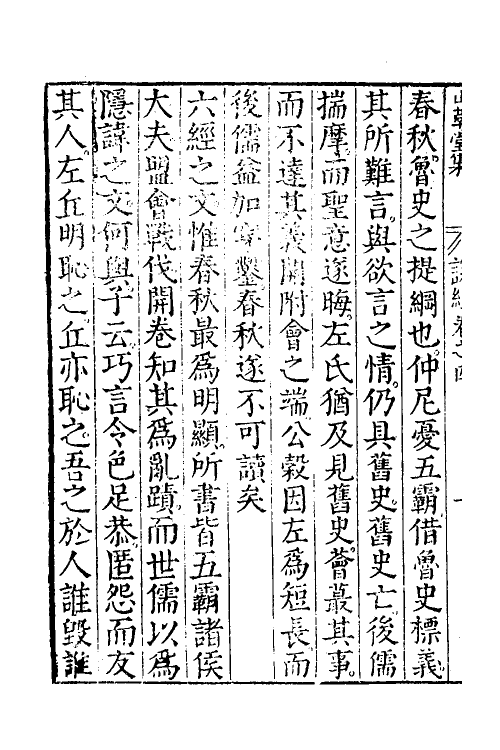 春秋魯史之提綱也仲尼憂五霸借魯史標義
其所難言與欲言之情仍具舊史舊史亡後儒
揣摩而聖意遂晦左氏猶及見舊史薈蕞其事
而不達其義開附會之端公穀因左為短長而
後儒益加穿鑿春秋遂不可讀矣
六經之文惟春秋最為明顯所書皆五霸諸侯
大夫盟會戰伐開卷知其為亂蹟而世儒以為
隱諱之文何與子云巧言令色足恭匿怨而友
其人左丘明恥之丘亦恥之吾之於人誰毀誰